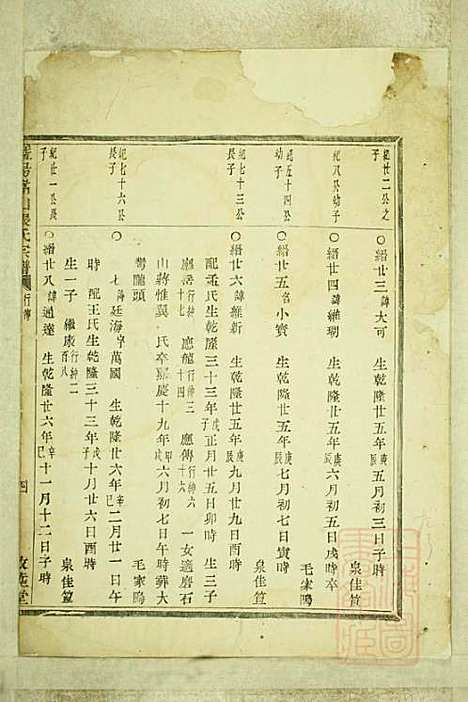 紀廿二公之子
○緒廿三諱大可 生乾隆廿五年庚辰六月初三日子時
泉佳笪
紀八公幼子
○緒廿四諱維瑚 生乾隆廿五年庚辰六月初五日戌時卒
毛家鳴
紀五十四公幼子
○緒廿五官小寳 生乾隆廿五年庚辰七月初七日寅時
泉佳笪
紀七十三公長子
○緒廿六諱維新 生乾隆廿五年庚辰九月廿九日酉時
配孟氏生乾隆三十三年戊子正月廿五日卯時 生三子
應行紳十七 應龍行紳三十四 應傳行紳六十六 一女適磨石
山蔣惟巽 氏卒嘉慶十九年甲戌六月初七日午時葬大
灣龍頭
毛家鳴
紀七十六公長子
○ 七諱廷海字萬國 生乾隆廿六年辛巳二月廿一日午
時 配王氏生乾隆三十三年戊子十月廿六日酉時
生一子 繼康行紳二百八
泉佳笪
紀廿一公長子
○緒廿八諱通達 生乾隆廿六年辛巳十一月十二日子時
山 氏宗譜 行傳 四
堂